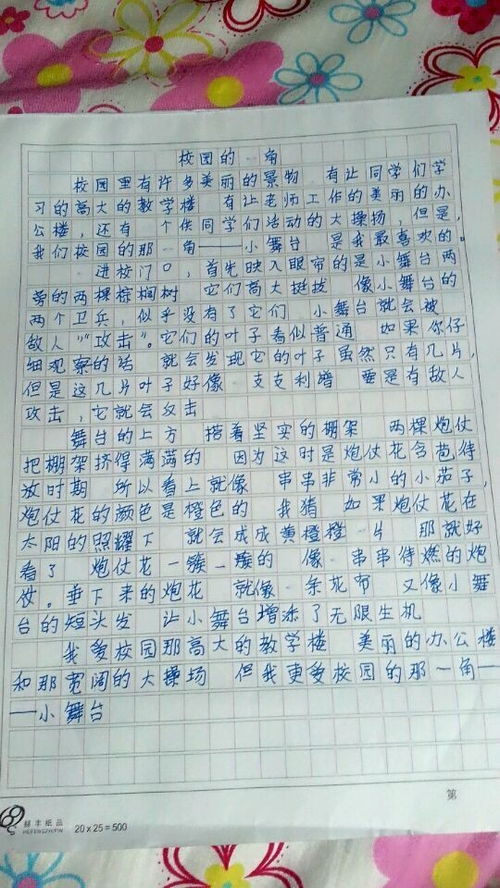 校园的一角
校园里有许多美丽的景物 有让同学们学
习的高大的教学楼 有让老师工作的美丽的办
公楼，还有一个供同学们活动的大操场，但是，
我们校园的那一角——小舞台 是我最喜欢的。
一进校门口，首先映入眼帘的是小舞台两
旁的两棵棕榈树 它们高大挺拔 像小舞台的
两个卫兵，似乎没有了它们 小舞台就会被
敌人"攻击"。它们的叶子看似普通 如果你仔
细观察的话 就会发现它的叶子虽然只有几片，
但是这几片叶子好像一支支利增 要是有敌人
攻击，它就会攻击
舞台的上方 搭着坚实的棚架 两棵炮仗
把棚架挤得满满的 因为这时是炮仗花含苞待
放时期 所以看上就像一串串非常小的小茄子，
炮仗花的颜色是橙色的 我猜 如果炮仗花在
太阳的照耀下 就会成成黄橙橙一片 那就好
看了 炮仗花一簇一簇的 像一串串待燃的炮
仗。垂下来的炮花 就像一条花布 又像小舞
台的短头发 让小舞台增添了无限生机
我爱校园那高大的教学楼 美丽的办公楼
和那宽阔的大操场 但我更爱校园的那一角—
—小舞台
第
20×25=500